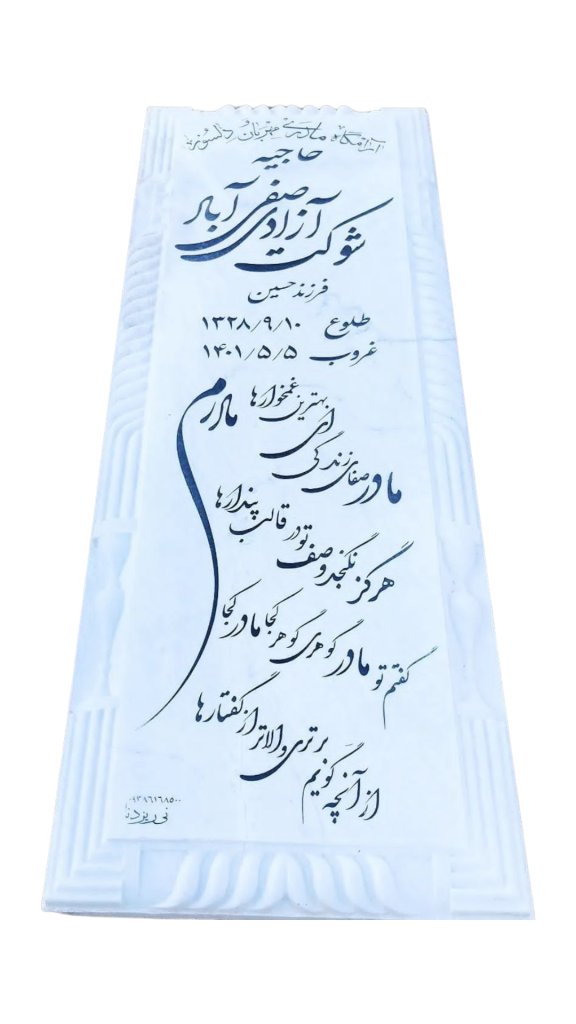 آرامگاه مادری مهربان و دلسوز
حاجیه
شوکت آزادی صفی آباد
فرزند حسین
طلوع ۱۳۲۸/۹/۱۰
غروب ۱۴۰۱/۵/۵
مادرم
مادر صفای زندگی ای بهترین غمخوارها
هرگز نگنجد وصف تو در قالب پندارها
گفتم تو مادر گوهری گوهر کجا مادر کجا
از آنچه گویم برتری والاتر از گفتارها
۰۹۳۸۶۱۶۸۵۰۰
نی ریز